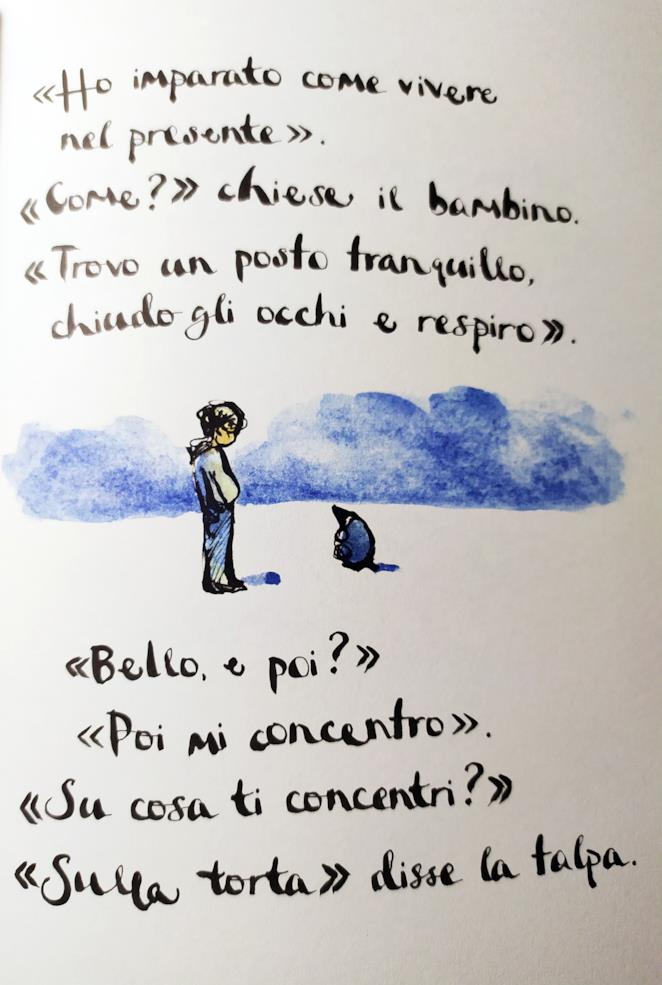 «Ho imparato come vivere
nel presente».
«Come?» chiese il bambino.
«Trovo un posto tranquillo,
chiudo gli occhi e respiro».
«Bello, e poi?»
«Poi mi concentro».
«Su cosa ti concentri?»
«Sulla torta» disse la talpa.